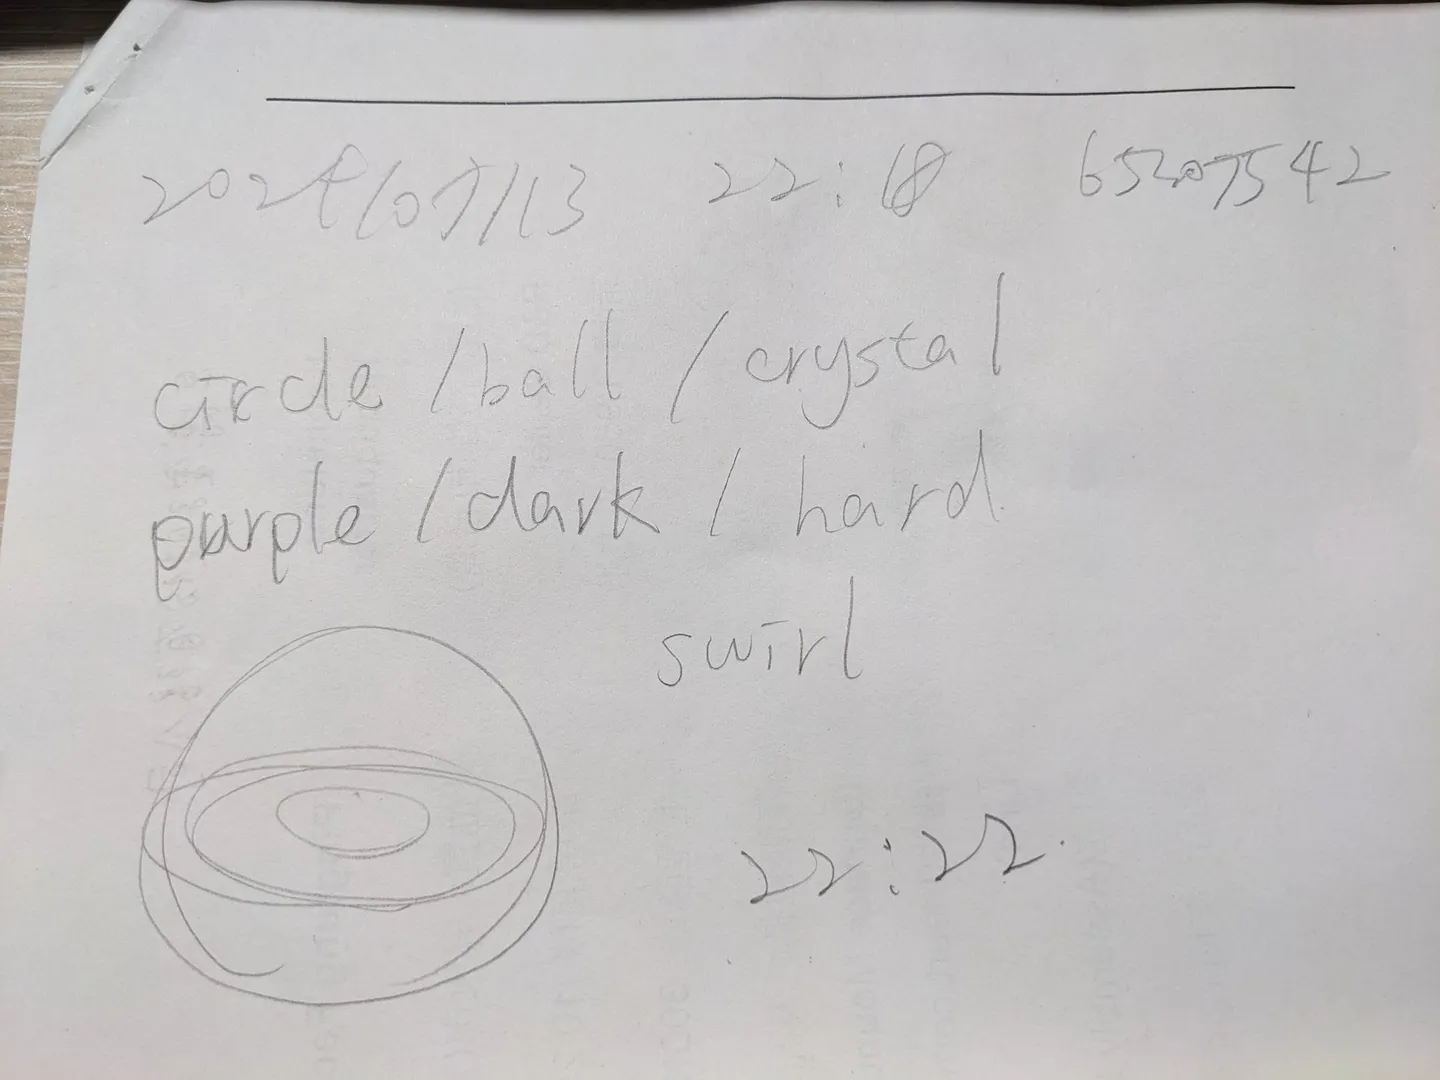 2024/07/13 22:18 65207542
circle / ball / crystal
purple / dark / hard
swirl
22:22